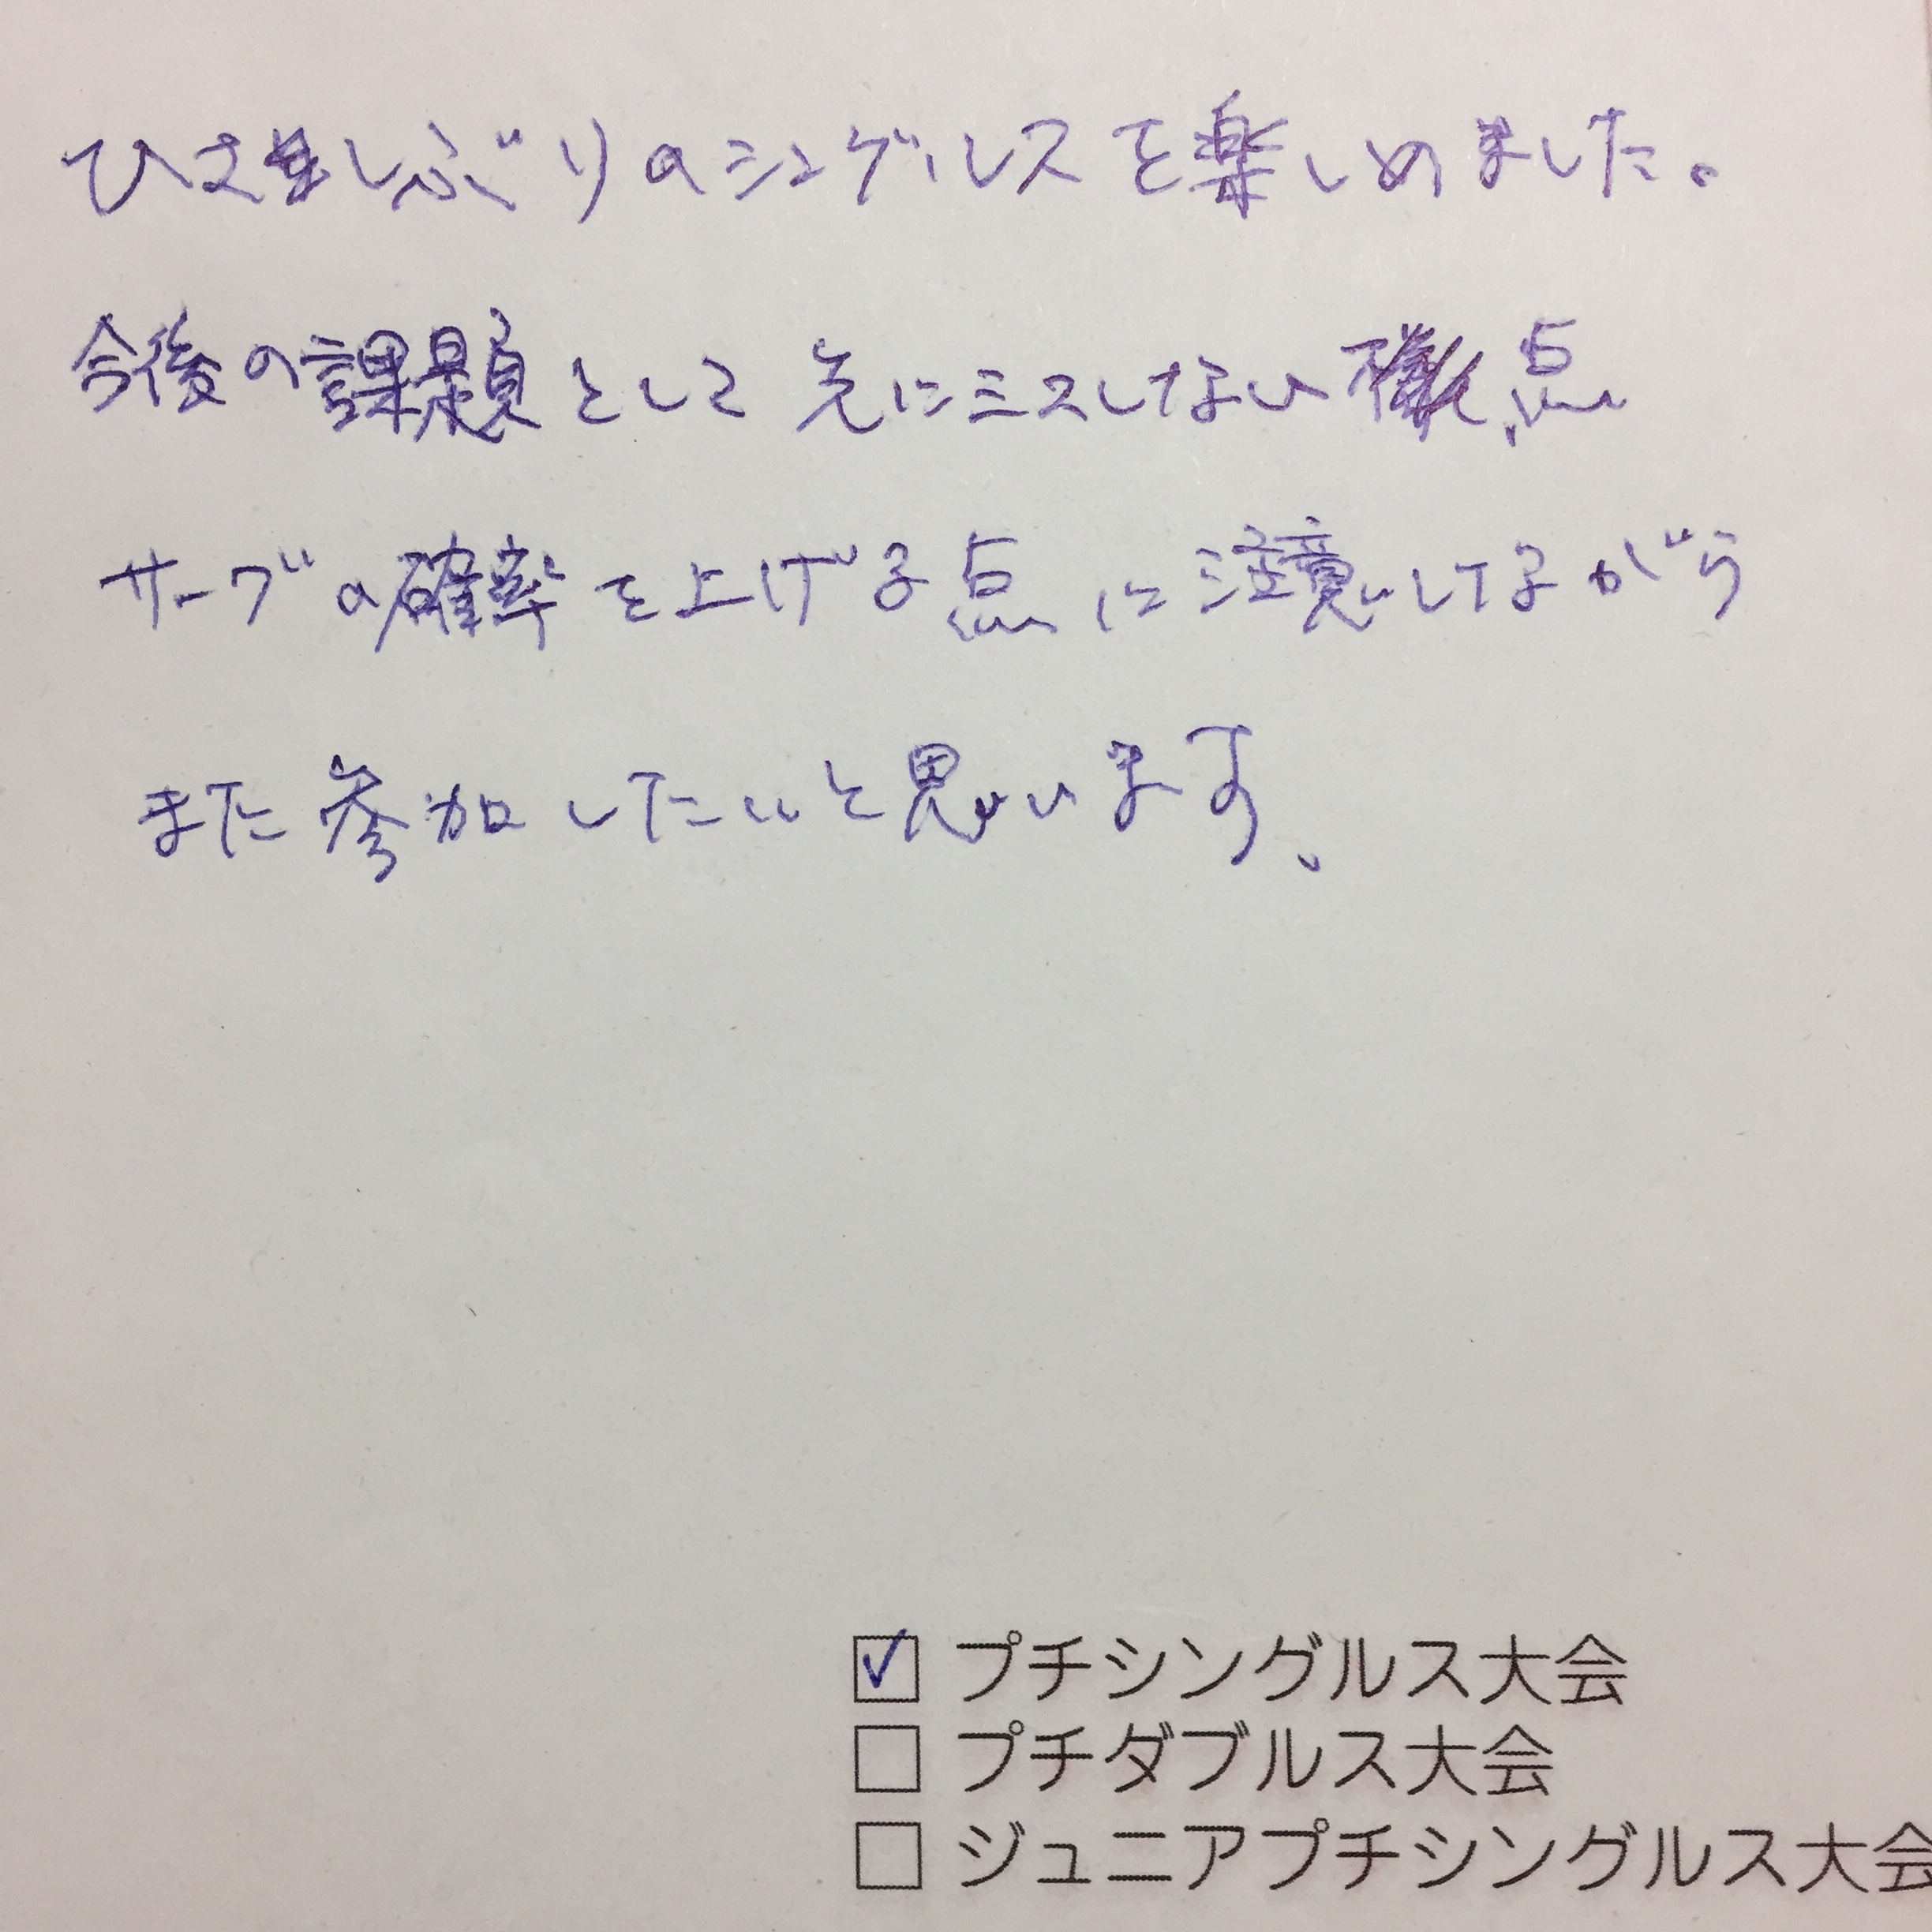 ひさしぶりのシングルスを楽しめました。
今後の課題として先にミスしない点
サーブの確率を上げる点に注意してるがら
また参加したいと思います、
☑ プチシングルス大会
☐ プチダブルス大会
☐ ジュニアプチシングルス大会